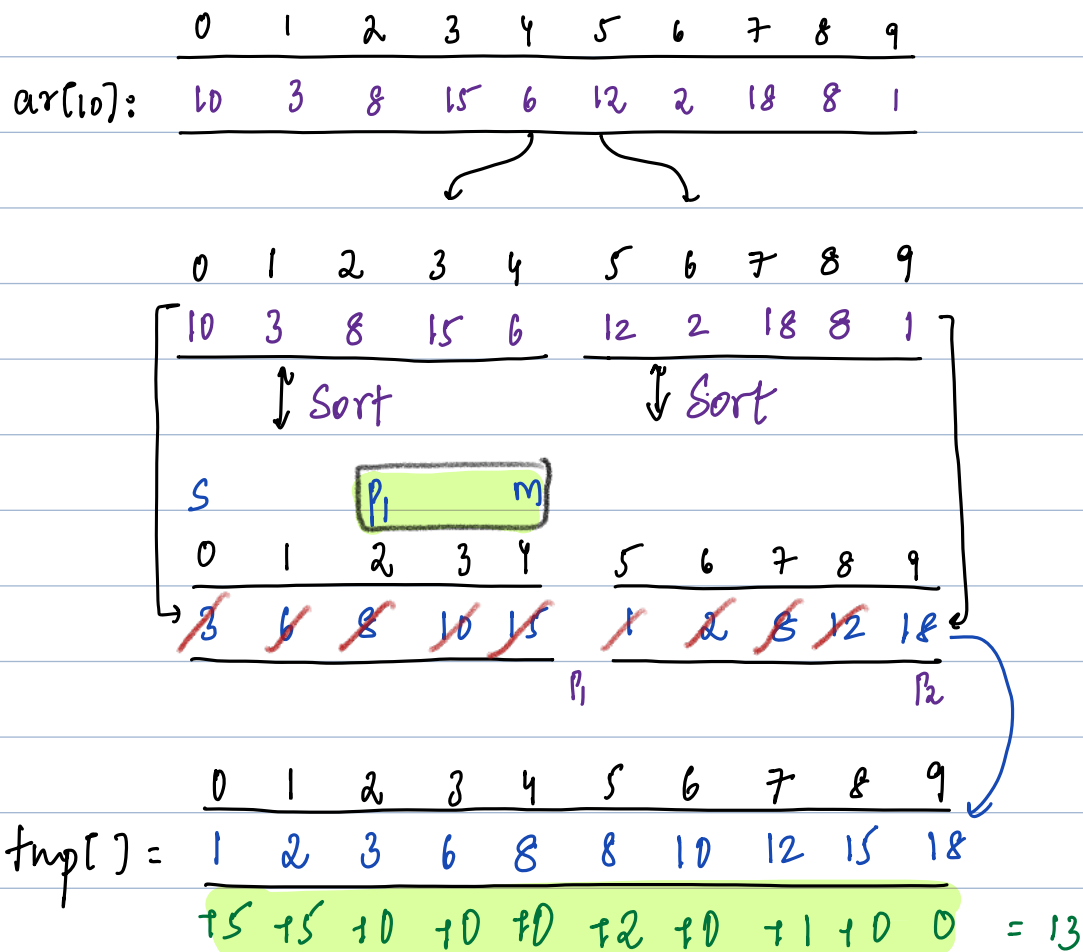 0 1 2 3 4 5 6 7 8 9
ar[10]: 10 3 8 15 6 12 2 18 8 1
0 1 2 3 4 5 6 7 8 9
10 3 8 15 6 12 2 18 8 1
Sort Sort
S P1 m
0 1 2 3 4 5 6 7 8 9
3 6 8 10 15 1 2 8 12 18
P1 P2
0 1 2 3 4 5 6 7 8 9
tmp[] = 1 2 3 6 8 8 10 12 15 18
+5 +5 +0 +0 +0 +2 +0 +1 +0 0 = 13